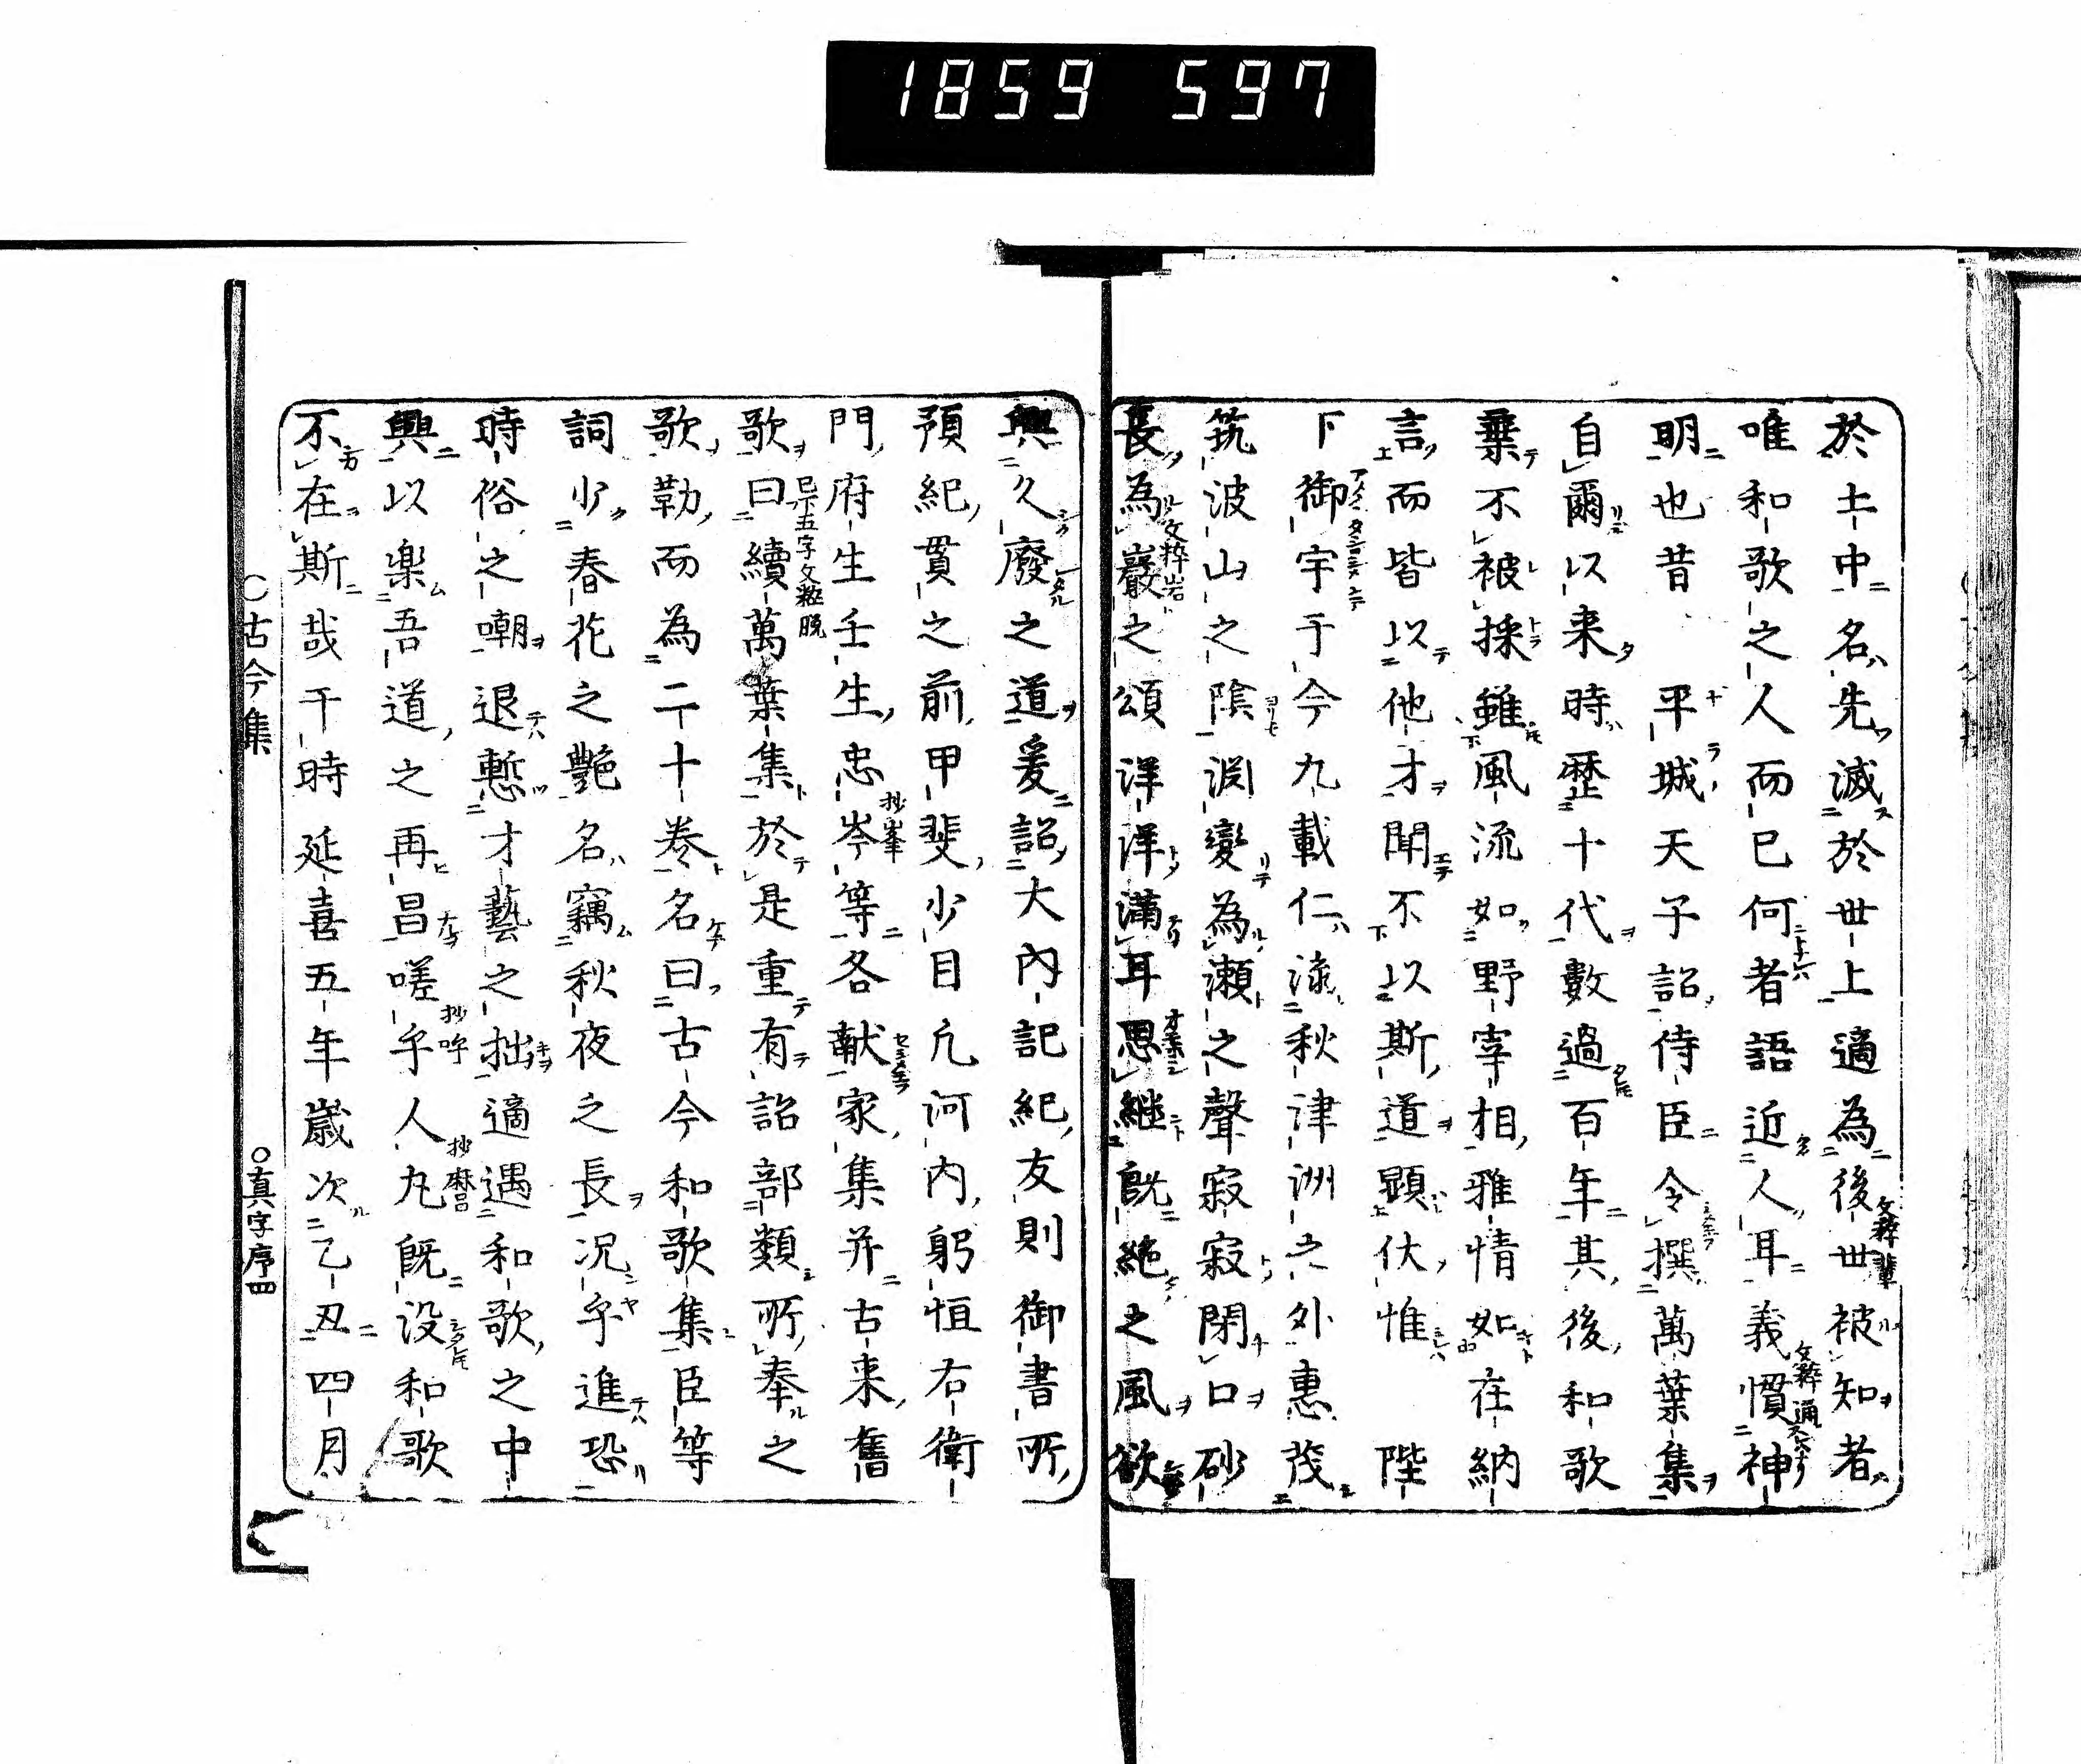 1859 597
於土中名先滅於世上適為後世被知者
唯和歌之人而已何者語近人耳義慣神
明也昔 平城天子詔侍臣令撰萬葉集
自爾以来時歴十代數過百年其後和歌
棄不被採雖風流如野宰相雅情如在納
言而皆以他才聞不以斯道顕伏惟 陛
下御宇于今九載仁流秋津洲之外惠茂
筑波山之陰淵變為瀬之聲寂寂閉口砂
長為巖之頌洋洋滿耳思継既絶之風欲
興久廢之道爰詔大内記紀友則御書所
預紀貫之前甲斐少目凡河内躬恒右衛
門府生壬生忠岑等各献家集并古来舊
歌曰續萬葉集於是重有詔部類所奉之
歌勒而為二十巻名曰古今和歌集臣等
詞少春花之艶名竊秋夜之長况乎進恐
時俗之嘲退慙才藝之拙適遇和歌之中
興以楽吾道之再昌嗟乎人丸既没和歌
不在斯哉于時延喜五年歳次乙丑四月
○古今集 ○真字序四